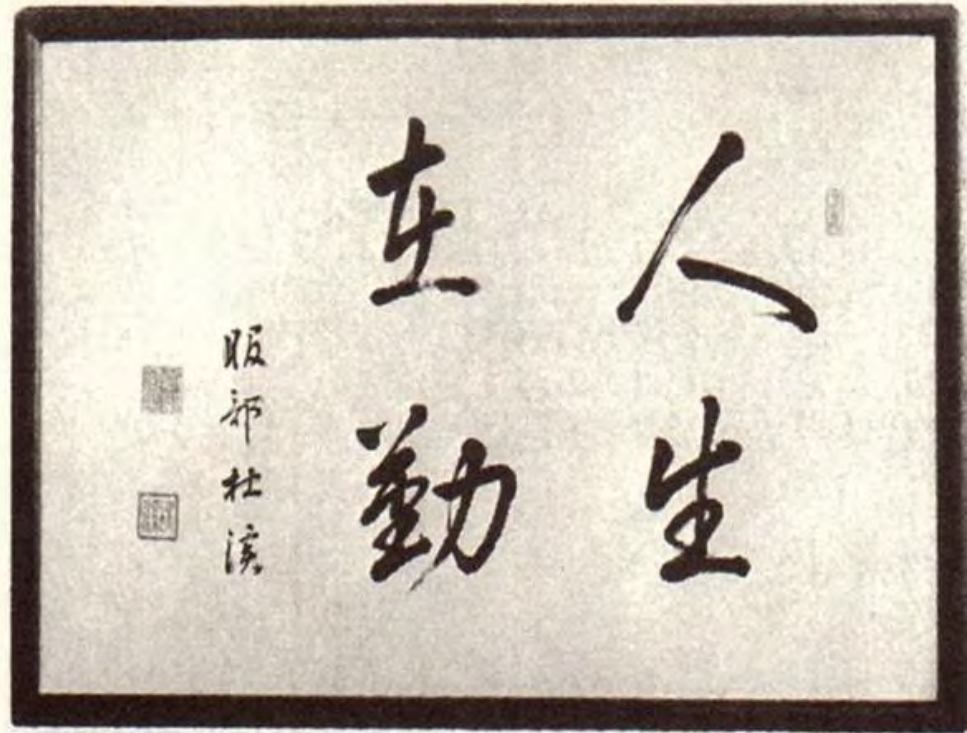 人生
在勤
服部杜渓